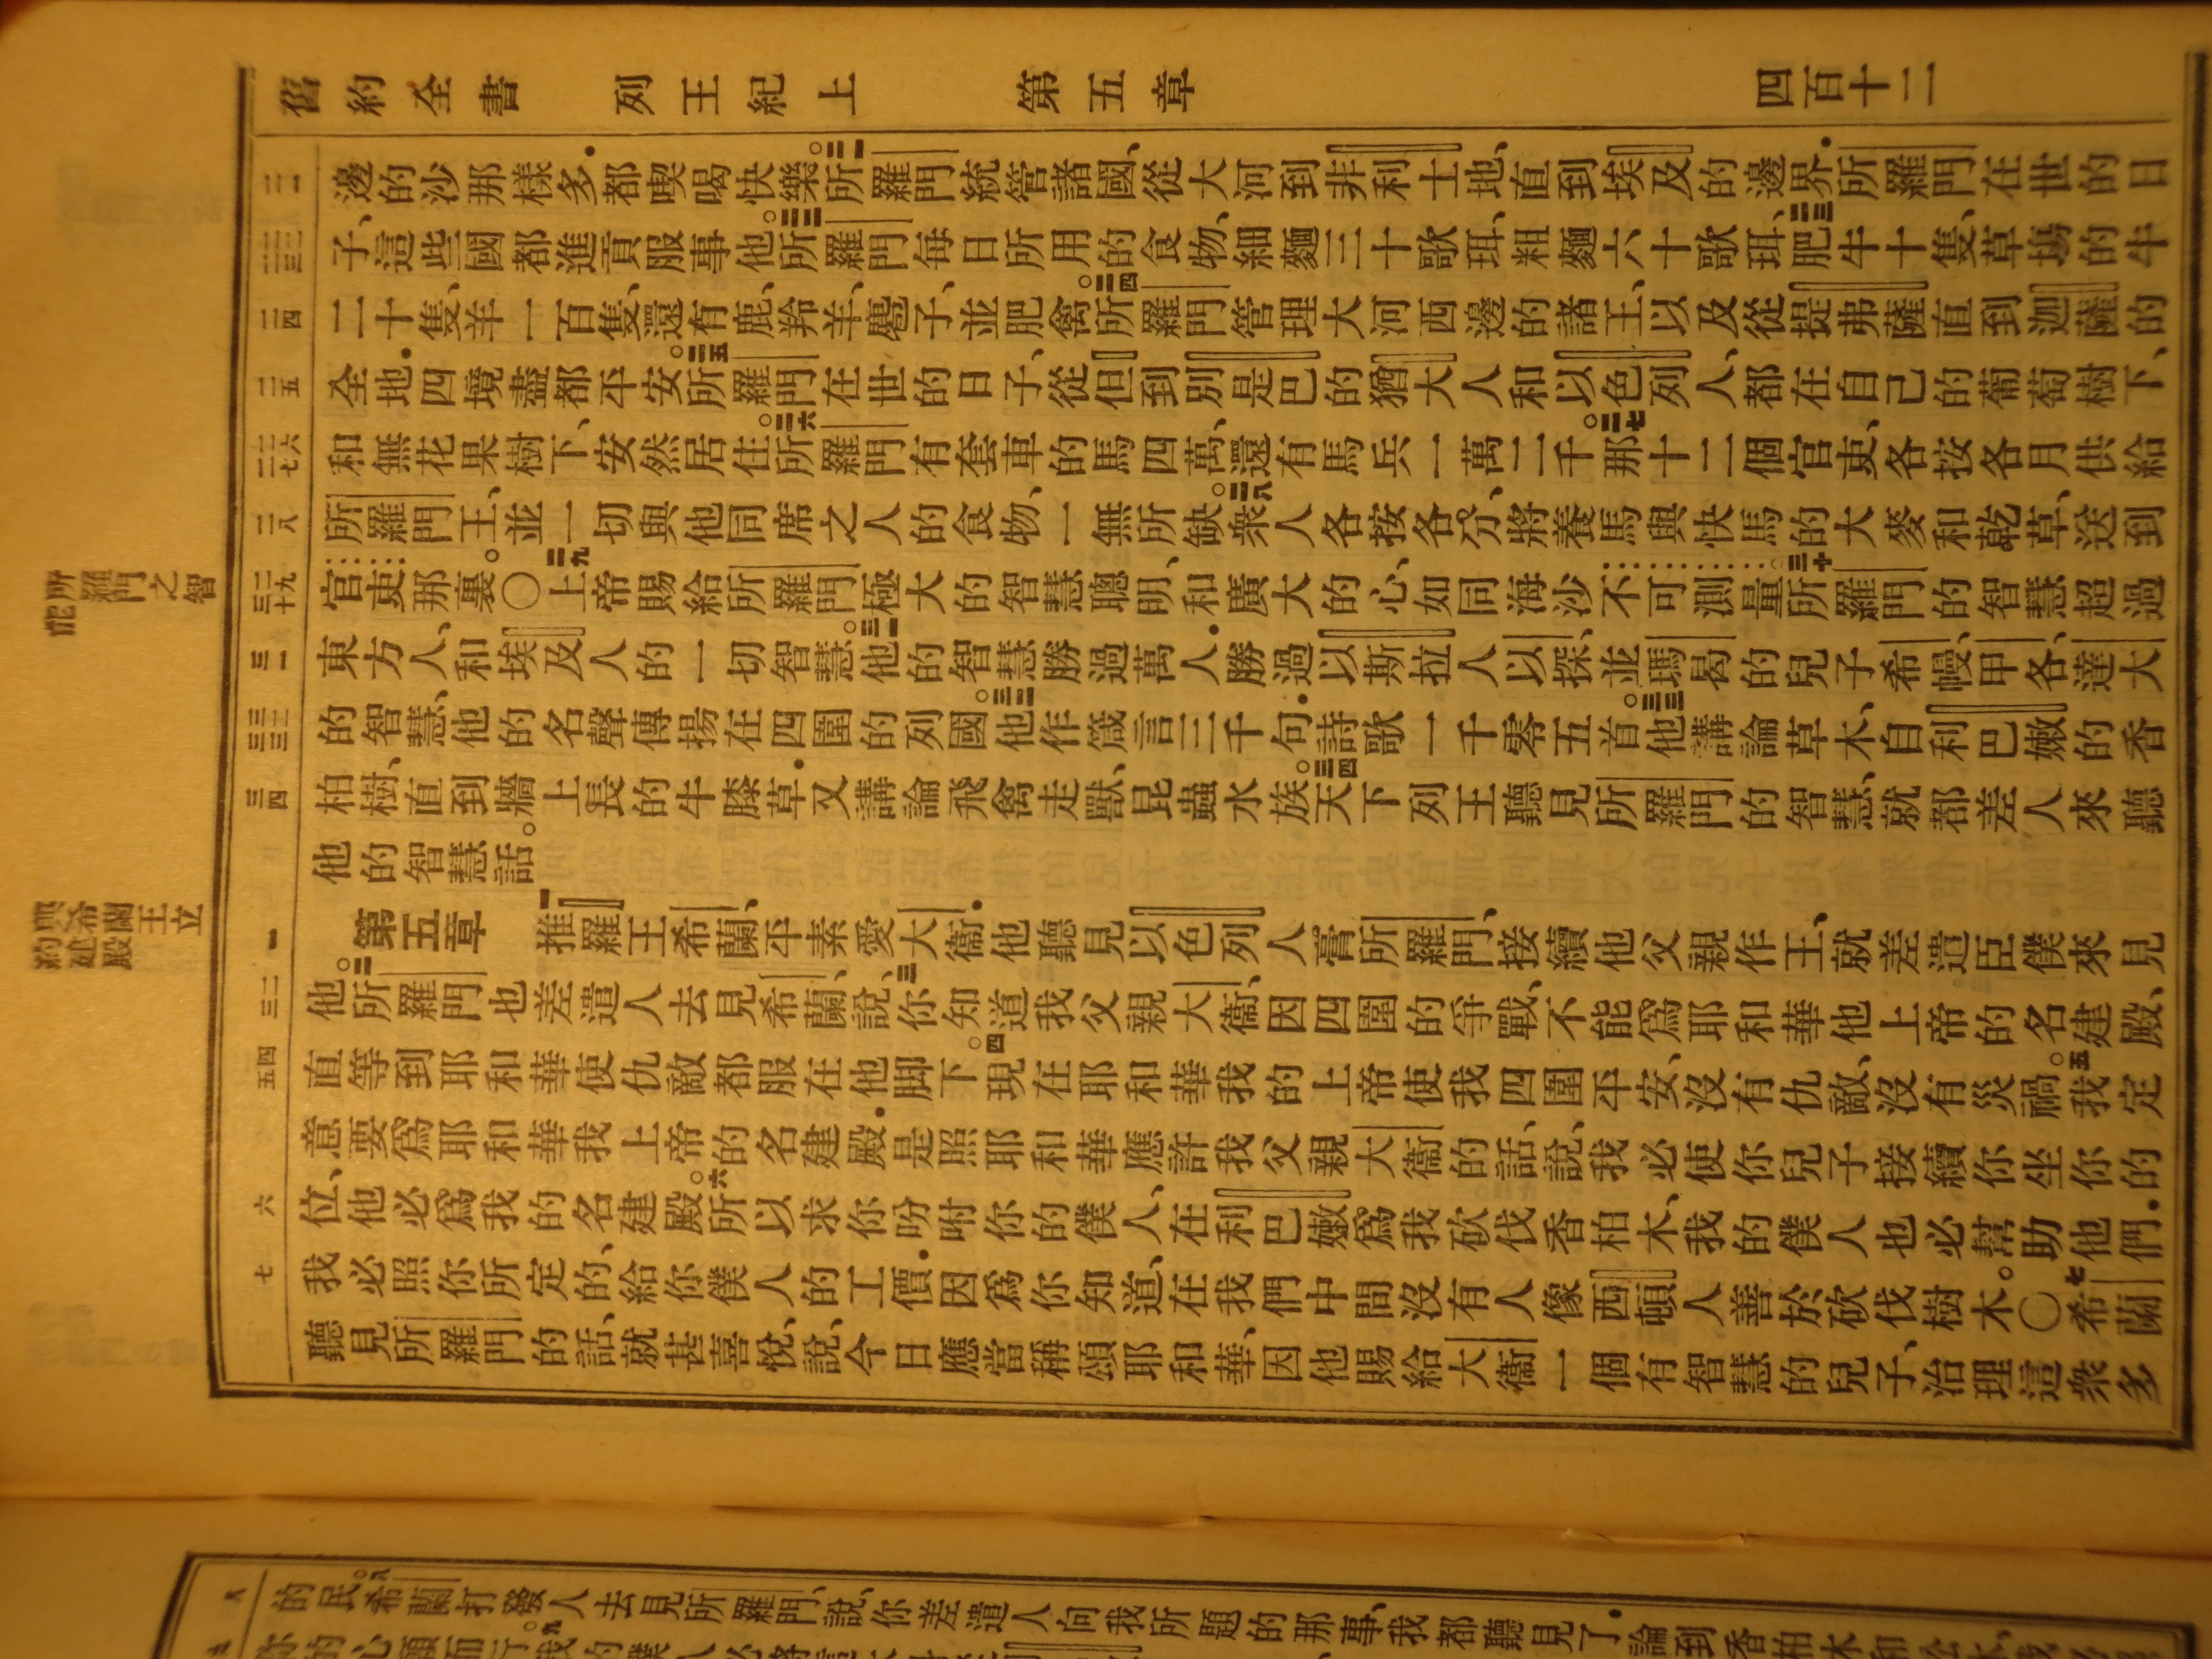 舊約全書 列王紀上 第五章 四百十二
邊的沙那樣多.都喫喝快樂。二一所羅門統管諸國、從大河到非利士地、直到埃及的邊界.所羅門在世的日
子、這些國都進貢服事他。二二所羅門每日所用的食物、細麵三十歌珥、粗麵六十歌珥、二三肥牛十隻、草塲的牛
二十隻、羊一百隻、還有鹿、羚羊、麅子、並肥禽。二四所羅門管理大河西邊的諸王、以及從提弗薩直到迦薩的
全地.四境盡都平安。二五所羅門在世的日子、從但到別是巴的猶大人和以色列人、都在自己的葡萄樹下、
和無花果樹下、安然居住。二六所羅門有套車的馬四萬、還有馬兵一萬二千。二七那十二個官吏、各按各月供給
所羅門王、並一切與他同席之人的食物、一無所缺。二八衆人各按各分、將養馬與快馬的大麥和乾草、送到
官吏那裏。〇二九上帝賜給所羅門極大的智慧聰明、和廣大的心、如同海沙不可測量。三十所羅門的智慧超過
東方人、和埃及人的一切智慧。三一他的智慧勝過萬人.勝過以斯拉人以探、並瑪曷的兒子希幔、甲各、達大
的智慧、他的名聲傳揚在四圍的列國。三二他作箴言三千句.詩歌一千零五首。三三他講論草木、自利巴嫩的香
柏樹、直到牆上長的牛膝草.又講論飛禽走獸、昆蟲水族。三四天下列王聽見所羅門的智慧、就都差人來聽
他的智慧話。
第五章 一推羅王希蘭、平素愛大衞.他聽見以色列人膏所羅門、接續他父親作王、就差遣臣僕來見
他。二所羅門也差遣人去見希蘭、說、三你知道我父親大衞、因四圍的爭戰、不能爲耶和華他上帝的名建殿、
直等到耶和華使仇敵都服在他脚下。四現在耶和華我的上帝使我四圍平安、沒有仇敵、沒有災禍。五我定
意要爲耶和華我上帝的名建殿.是照耶和華應許我父親大衞的話、說、我必使你兒子接續你坐你的
位、他必爲我的名建殿。六所以求你吩咐你的僕人、在利巴嫩爲我砍伐香柏木、我的僕人也必幫助他們.
我必照你所定的、給你僕人的工價.因爲你知道、在我們中間沒有人像西頓人善於砍伐樹木。〇七希蘭
聽見所羅門的話、就甚喜悅、說、今日應當稱頌耶和華、因他賜給大衞一個有智慧的兒子、治理這衆多
二一
二二 二三
二四
二五
二六 二七
二八
二九 三十
三一
三二 三三
三四
一
二 三
四 五
六
七
所羅門之智
能
與希蘭王立
約建殿
的民。八希蘭打發人去見所羅門、說、你差遣人向我所題的那事、我都聽見了.論到香柏木